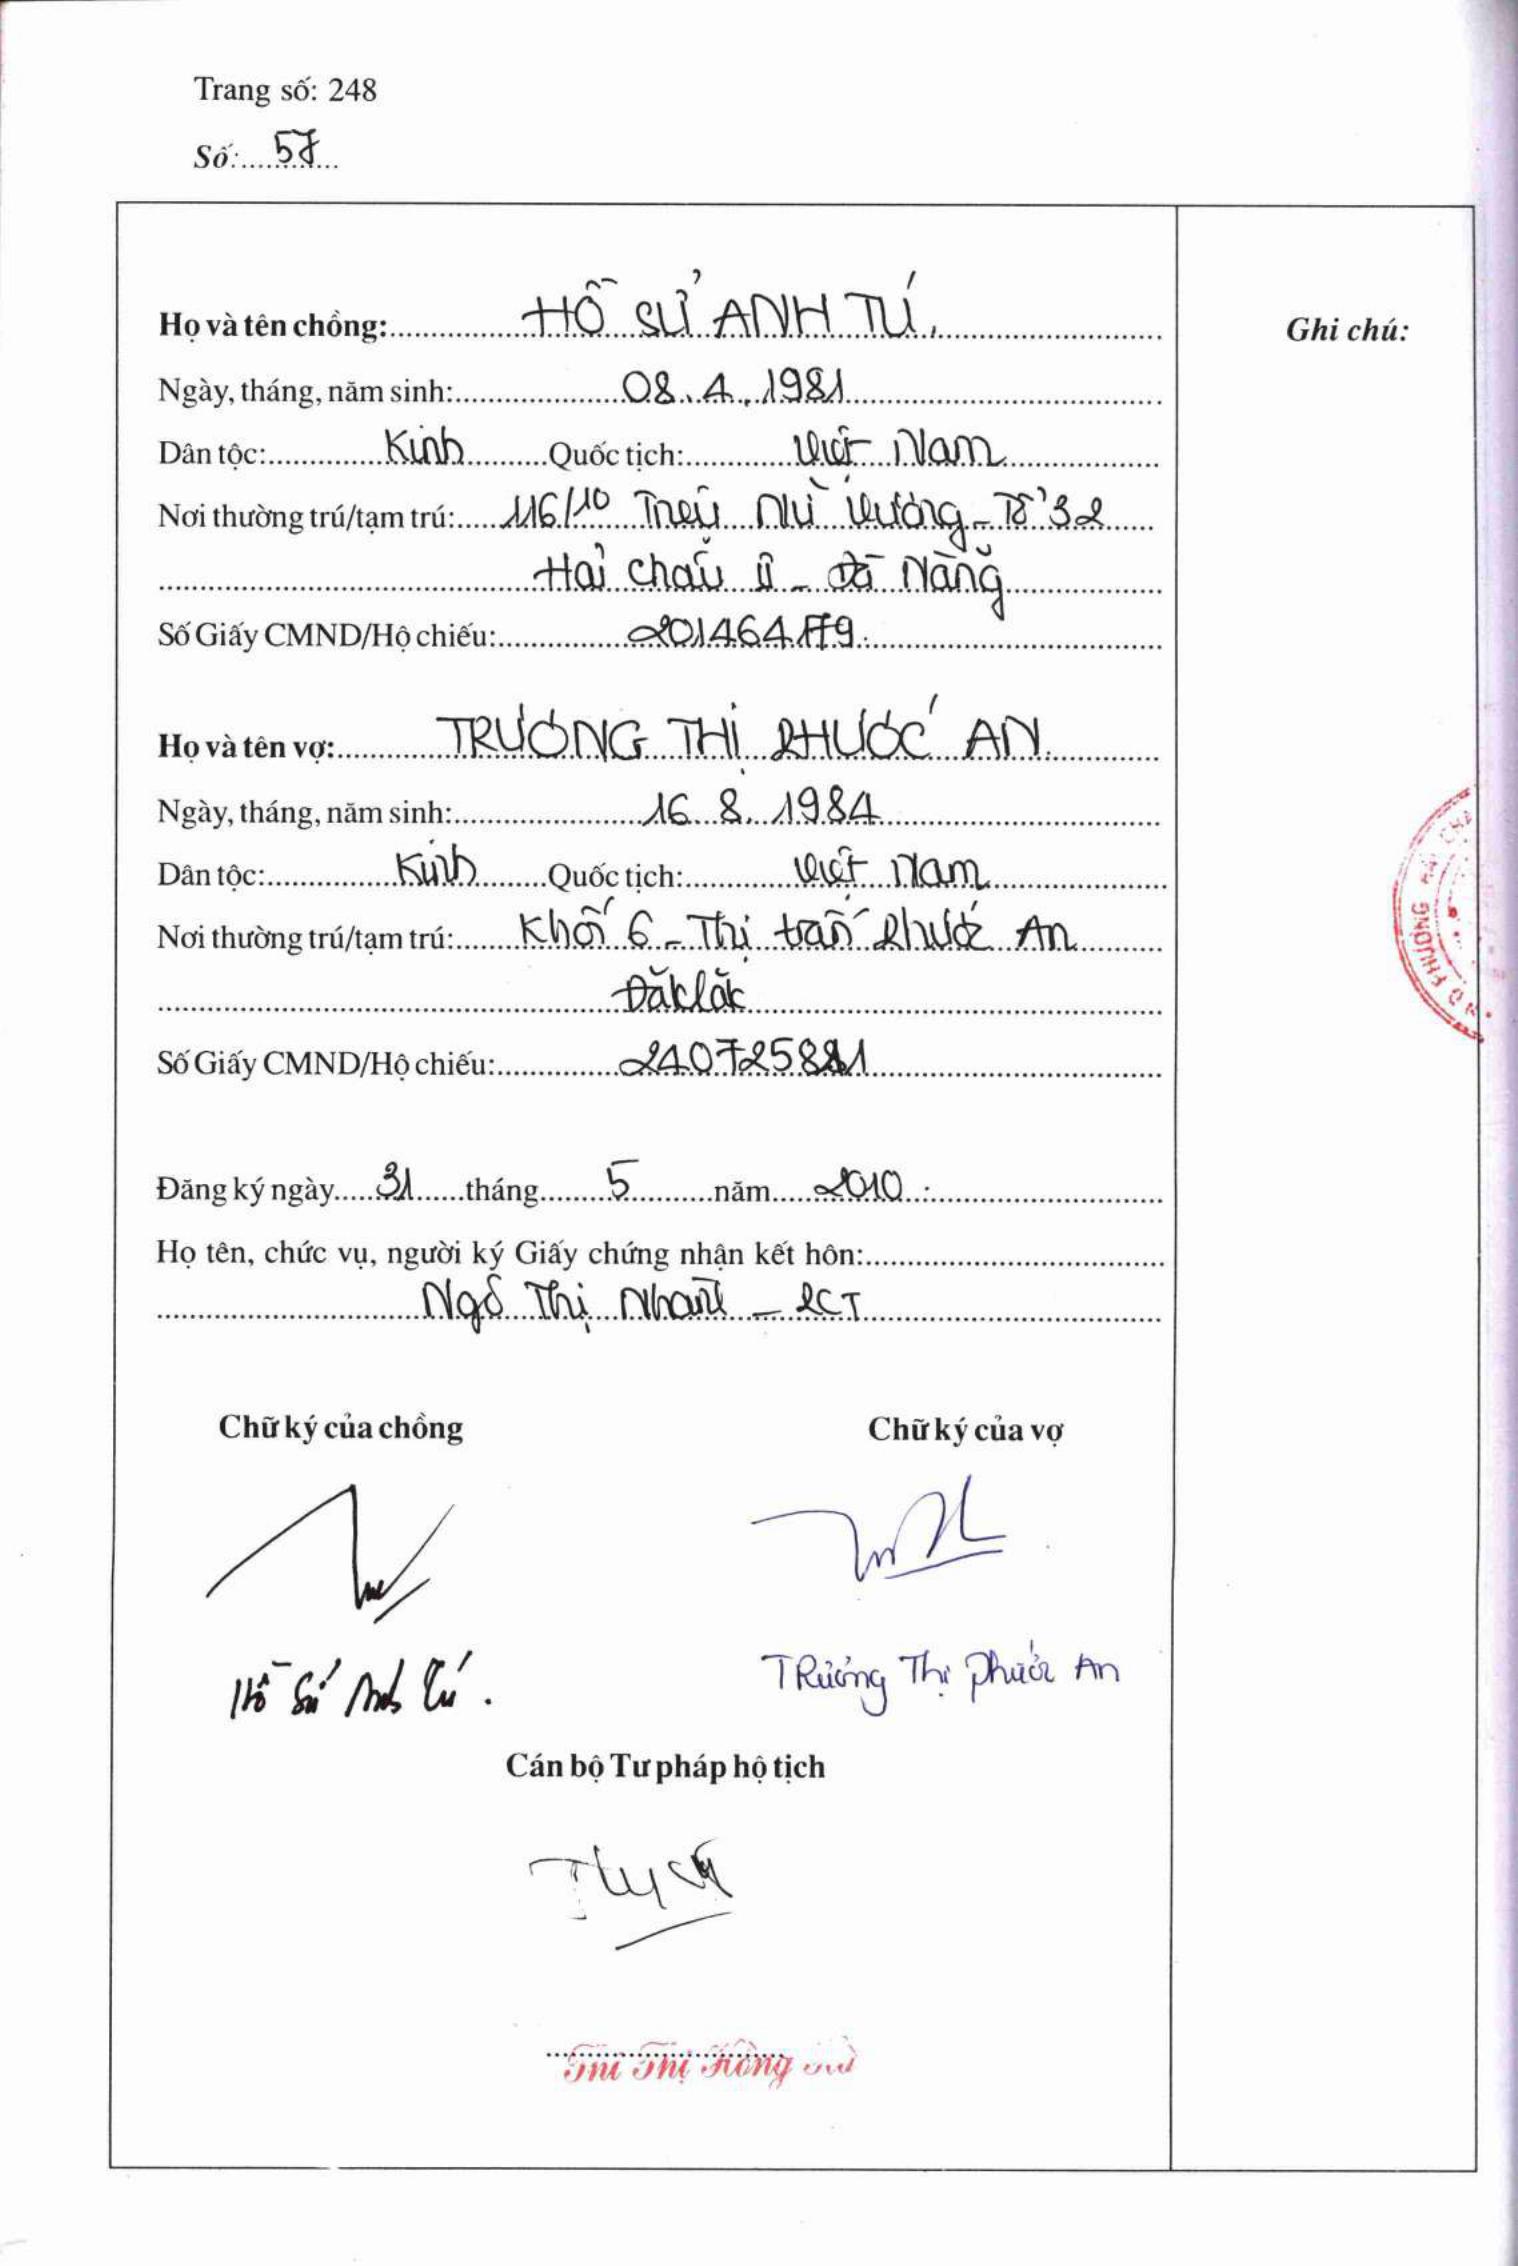 Trang số: 248
Số: 57
Họ và tên chồng: HỒ SỬ ANH TÚ
Ghi chú:
Ngày, tháng, năm sinh: 08.4.1981
Dân tộc: Kinh Quốc tịch: Việt Nam
Nơi thường trú/tạm trú: 116/10 Triệu Nữ Vương - Tổ 32
Hải Châu II - Đà Nẵng
Số Giấy CMND/Hộ chiếu: 201464779
Họ và tên vợ: TRƯƠNG THỊ PHƯỚC AN
Ngày, tháng, năm sinh: 16.8.1984
Dân tộc: Kinh Quốc tịch: Việt Nam
Nơi thường trú/tạm trú: Khối 6 - Thị trấn Phước An
Đăklăk
Số Giấy CMND/Hộ chiếu:
Đăng ký ngày 31 tháng 5 năm 2010
Họ tên, chức vụ, người ký Giấy chứng nhận kết hôn:
Ngô Thị Nhành - PCT
Chữ ký của chồng Chữ ký của vợ
Hồ Sử Anh Tú.
Trương Thị Phước An
Cán bộ Tư pháp hộ tịch
Thị Hồng